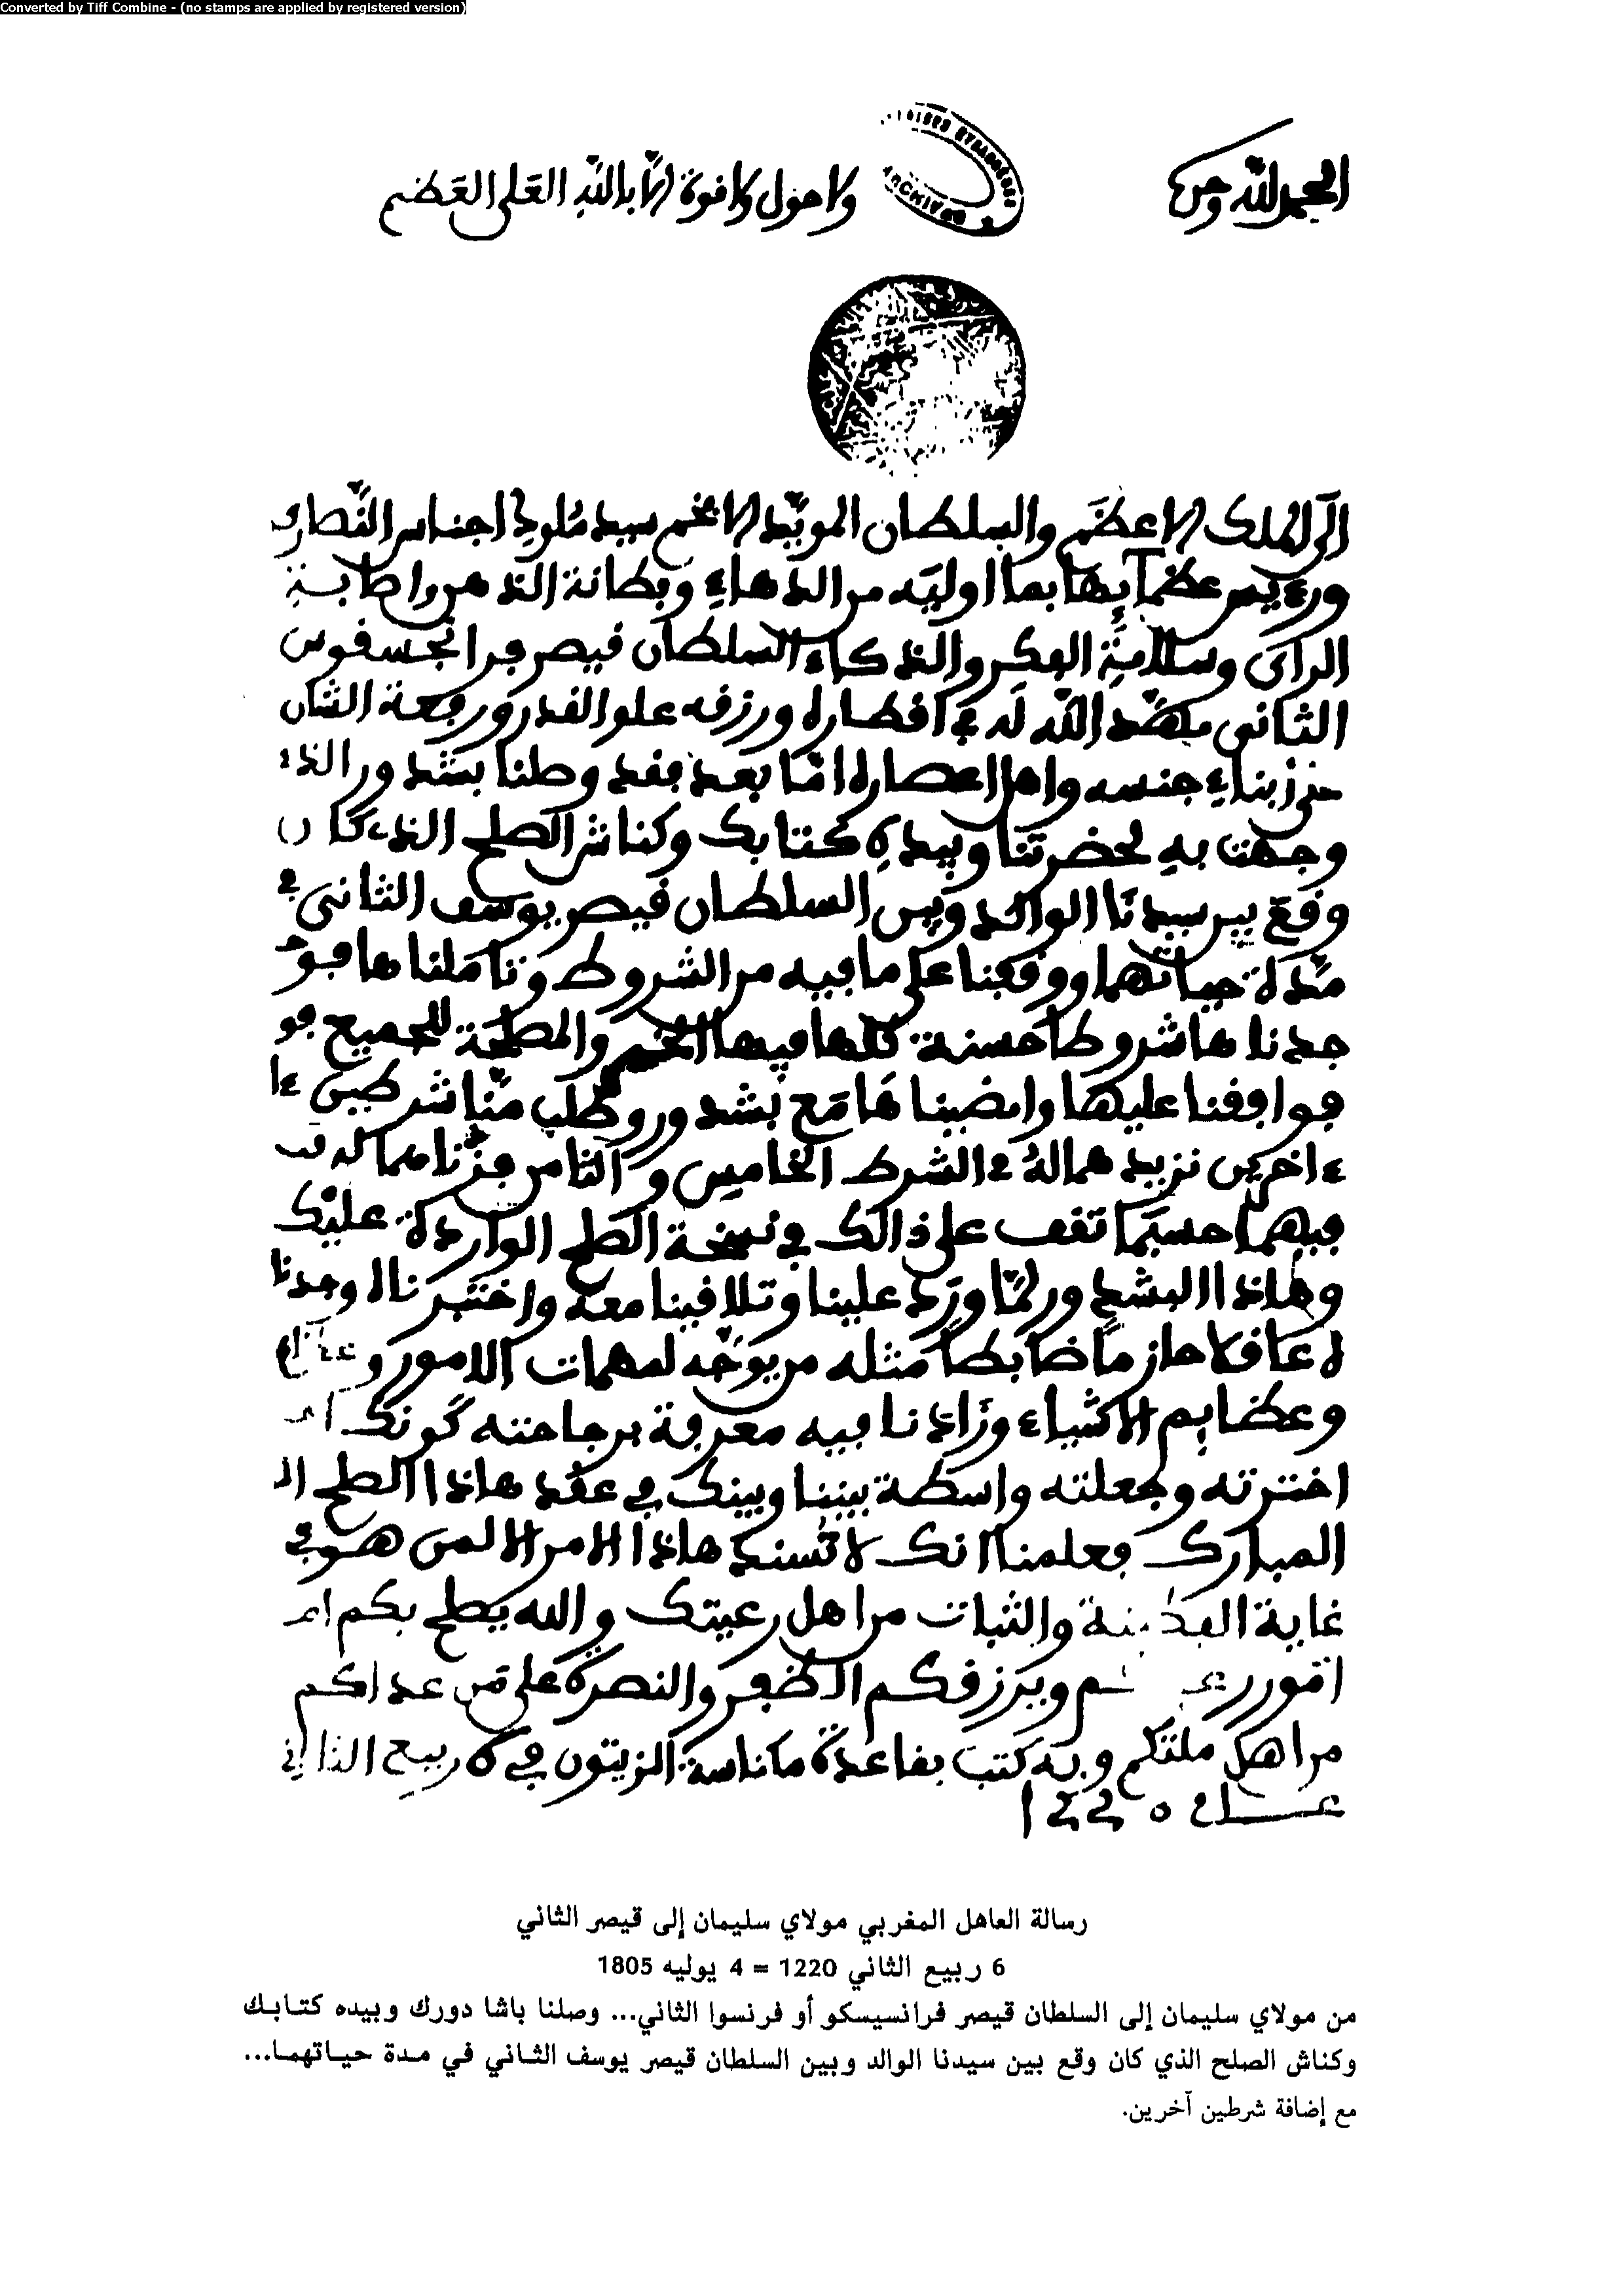 Converted by Tiff Combine - (no stamps are applied by registered version)
الحمد لله وحده
ولا حول ولا قوة إلا بالله العلي العضيم
ARCHIVES
الى الملك الاعضم والسلطان المويد الافخم سيد ملوك اجناس النصارى
ورءيس عضمايها بما اوليه من الدهاء وبطانة الذهن واصابة
الراى وسلامة الفكر والذكاء السلطان قيصر فرانجسقوس
الثانى مهد الله له في اقطاره ورزقه علو القدر ورفعة الشان
بين ابناء جنسه واهل اعصاره اما بعد فقد وصلنا بشدور الذى
وجهت به لحضرتنا وبيده كتابك وكناش الصلح الذى كان
وقع بين سيدنا الوالد وبين السلطان قيصر يوسف الثانى في
مدة حياتهما ووقفنا على ما فيه من الشروط وتاملناها فو
جدناها شروطا حسنة كلها فيها الخير والمصلحة للجميع فو
فوافقنا عليها وامضيناها مع بشدور وطلب منا شرطين ءا
ءاخرين نزيدهما له في الشرط الخامس والثامن فزدناهما له
فيهما حسبما تقف على ذالك في نسخة الصلح الواردة عليك
وهاذا البشدور لما ورد علينا وتلاقينا معه واختبرناه وجدنا
ه عاقلا حازما ضابطا مثله من يوجه لمهمات الامور
وعضايم الاشياء وزادنا فيه معرفة برجاحته كونك
اخترته وجعلته واسطة بيننا وبينك في عقد هاذا الصلح ال
المبارك فعلمنا انك لا تسند هاذا الامر الا لمن هو في
غاية والثبات من اهل رعيتك والله يصلح بكم
امور ويرزقكم الضفر والنصرة على من عداكم
من اهل ملتكم وبه كتب بقاعدة مكناسة الزيتون في ٥ ربيع الثاني
عام ١٢٢٠
رسالة العاهل المغربي مولاي سليمان إلى قيصر الثاني
6 ربيع الثاني 1220 = 4 يوليه 1805
من مولاي سليمان إلى السلطان قيصر فرانسيسكو أو فرنسوا الثاني... وصلنا باشا دورك وبيده كتابك
وكناش الصلح الذي كان وقع بين سيدنا الوالد وبين السلطان قيصر يوسف الثاني في مدة حياتهما...
مع إضافة شرطين آخرين.